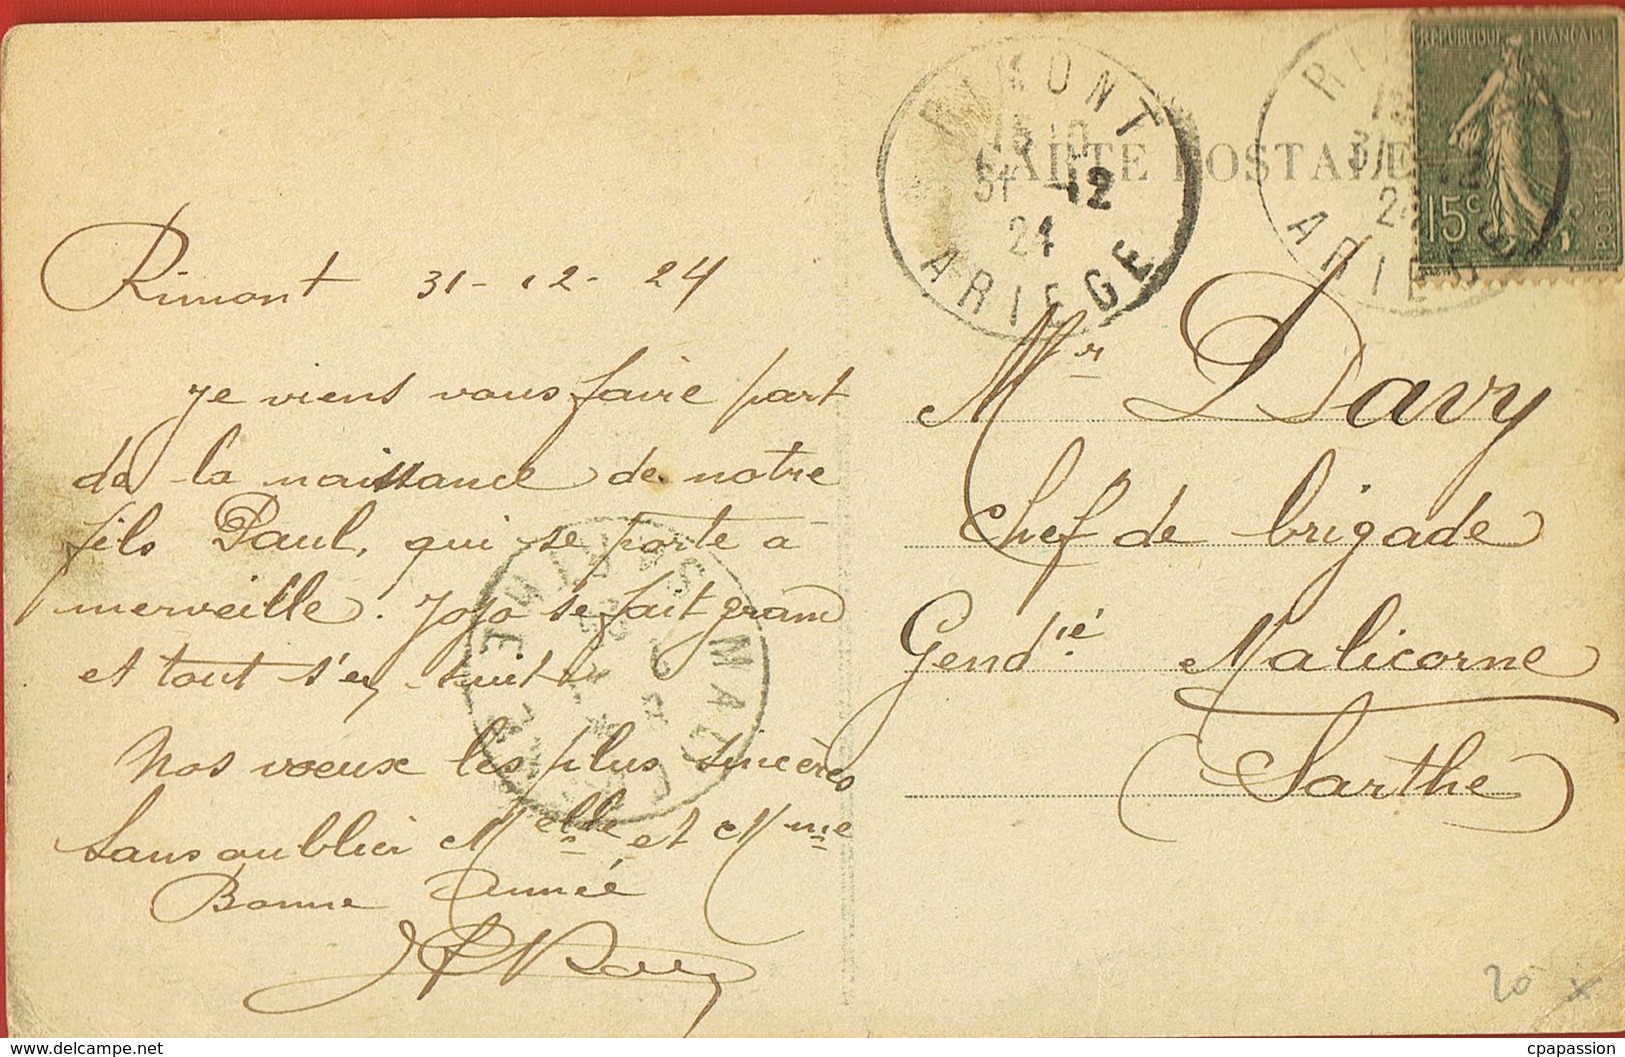 CARTE POSTALE
RIMONT
15 10
31 -12
24
ARIEGE
RI
31 12
24
ARIEGE
REPUBLIQUE FRANÇAISE
15c
POSTES
Rimont 31-12-24
Je viens vous faire part
de la naissance de notre
fils Paul, qui se porte à
merveille. Jojo se fait grand
et tout s'en suit
Nos voeux les plus sincères
Sans oublier Melle et Mme
Bonne Année
Mr Davy
Chef de brigade
Gendie Malicorne
Sarthe
MALICORNE
SARTHE
20 x
www.delcampe.net
cpapassion